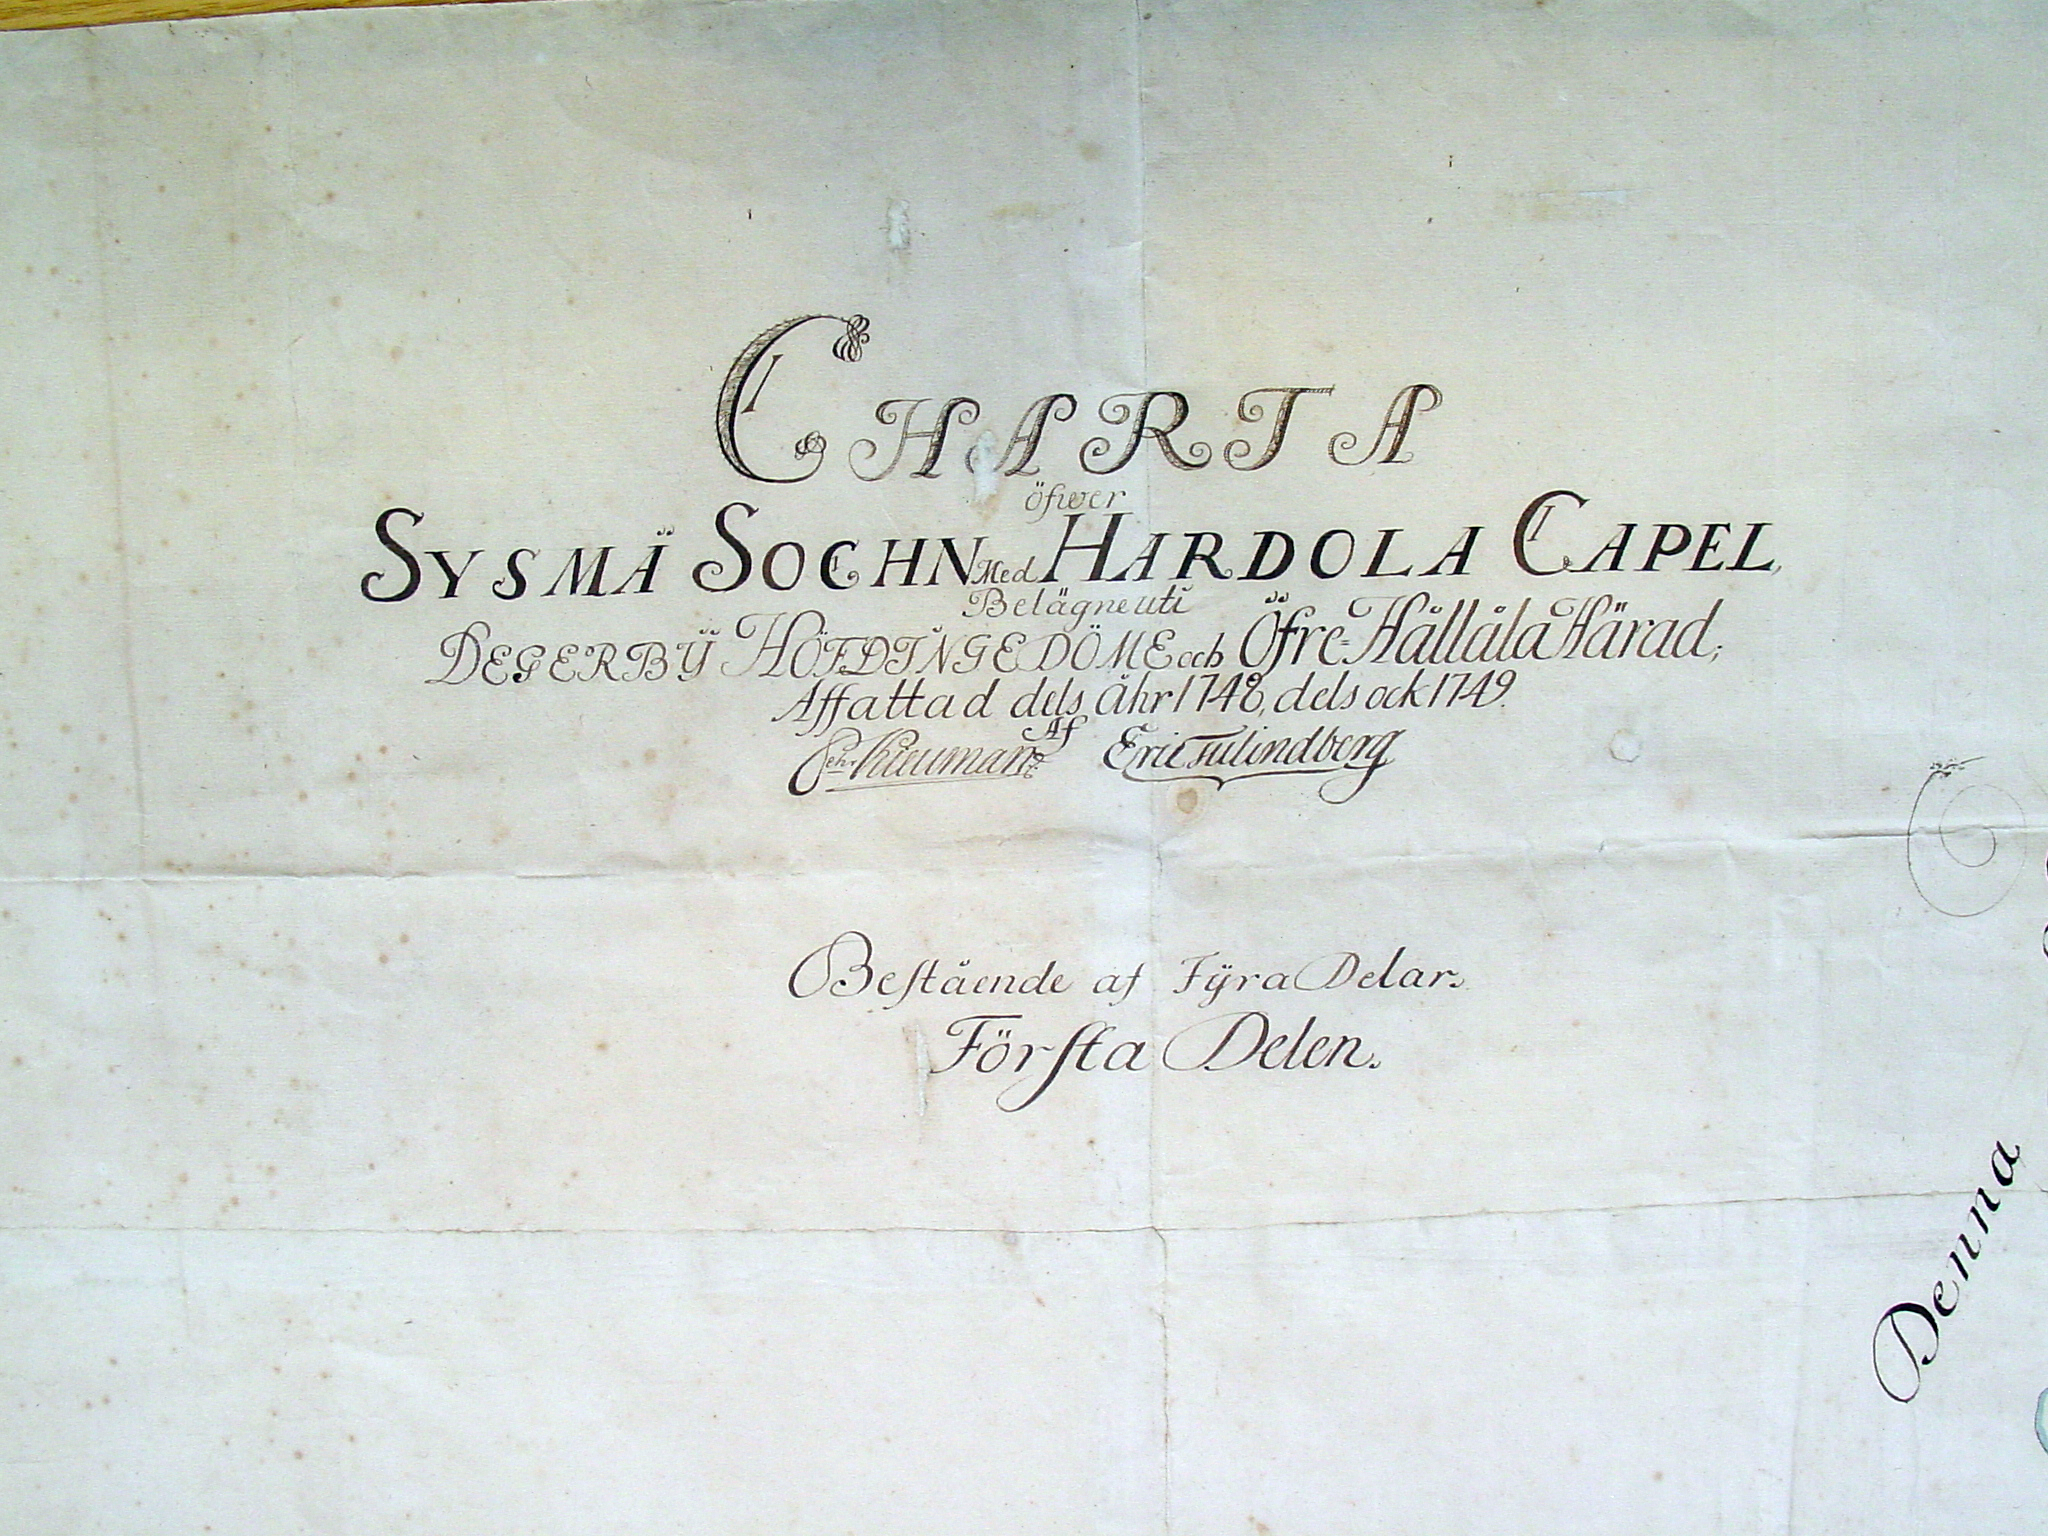 CHARTA
öfwer
SYSMÄ SOCHN Med HARDOLA CAPEL,
Belägne uti
DEGERBŸ HÖFDINGEDÖME och Öfre-Hållåla Härad;
Affattad dels åhr 1748, dels ock 1749.
Af
Eric Lindberg
Bestående af Fÿra Delar.
Första Delen.
Denna